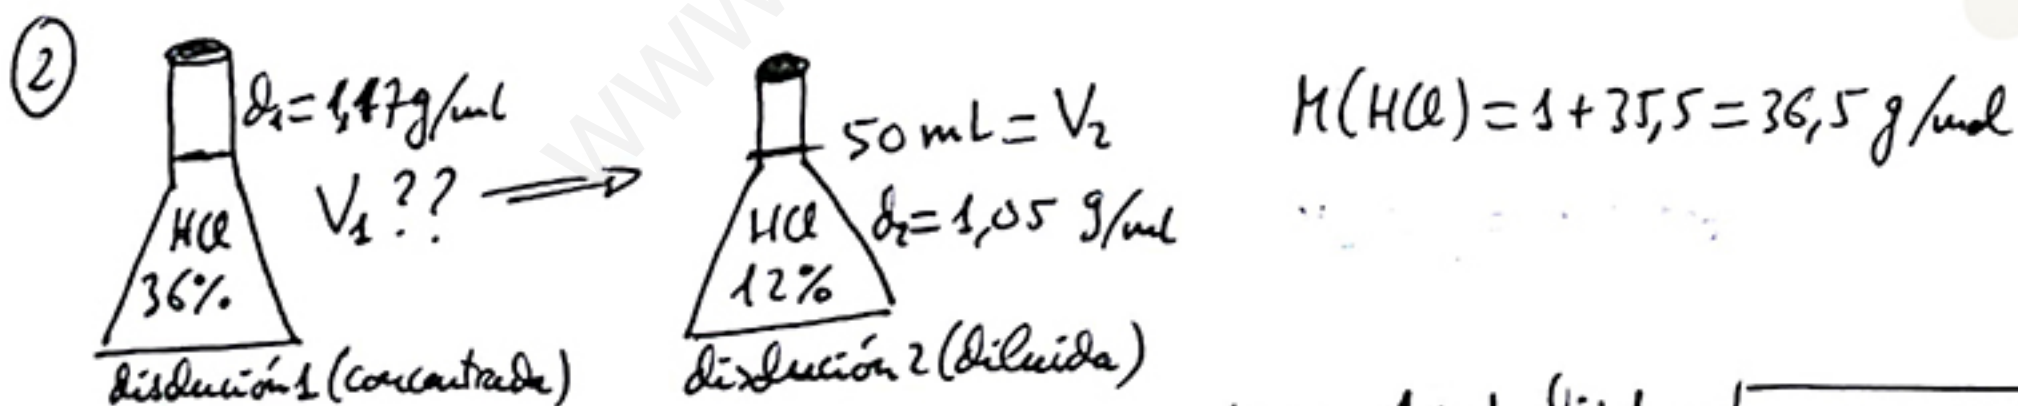 ②
d₁=1,17g/ml
V₁??
HCl
36%
disolución 1 (concentrada)
50 mL = V₂
d₂=1,05 g/ml
HCl
12%
disolución 2 (diluida)
M(HCl)=1+35,5=36,5 g/mol
www